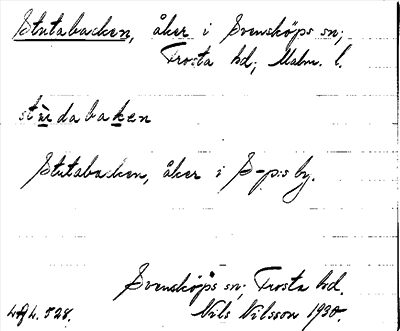 Stutabacken, åker i Svensköps sn;
Frosta hd; Malm. l.
stùdabaken
Stutabacken, åker i S-p:s by.
Svensköps sn; Frosta hd.
Nils Nilsson 1930.